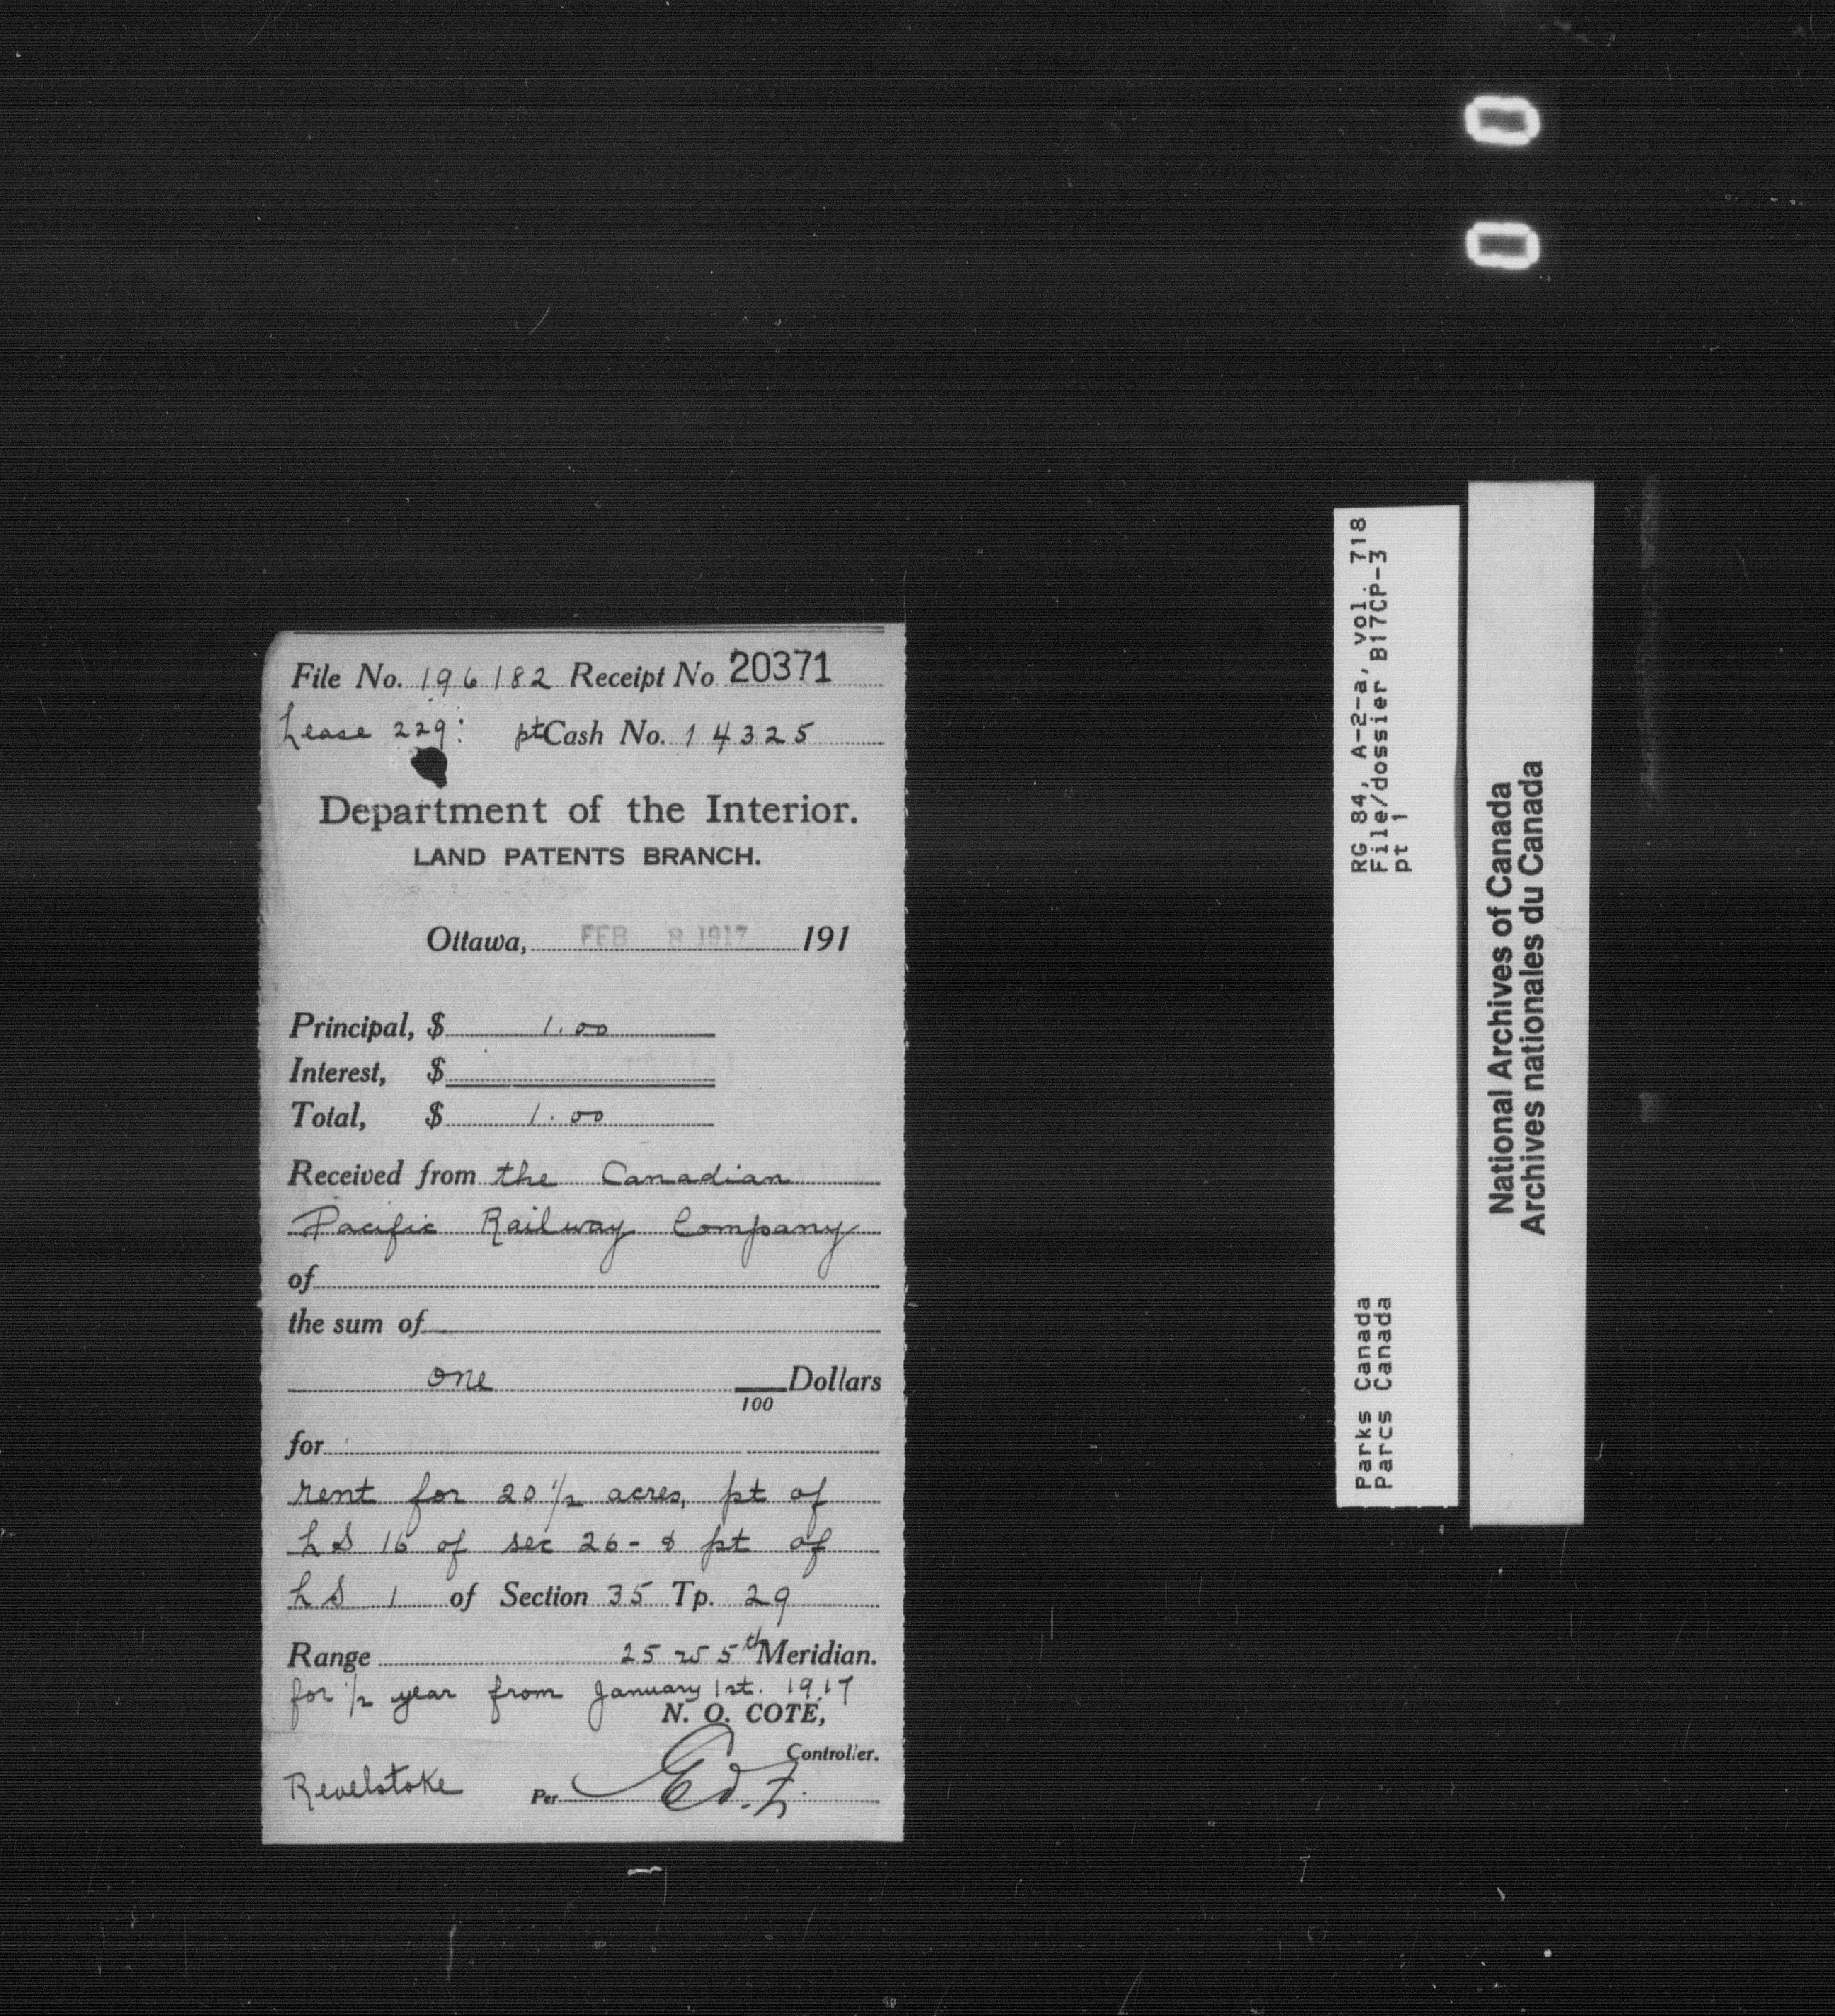 File No. 196182 Receipt No 20371
Lease 229: pt Cash No. 14325
Department of the Interior.
LAND PATENTS BRANCH.
Ottawa, FEB 8 1917 191
Principal, $ 1.00
Interest, $
Total, $ 1.00
Received from the Canadian
Pacific Railway Company
of
the sum of
one Dollars
100
for
rent for 20 1/2 acres, pt of
LS 16 of sec 26 - & pt of
LS 1 of Section 35 Tp. 29
Range 25 W 5th Meridian.
for 1/2 year from January 1st. 1917
N. O. COTÉ,
Controller.
Revelstoke Per
RG 84, A-2-a, vol. 718
File/dossier B17CP-3
pt 1
Parks Canada
Parcs Canada
National Archives of Canada
Archives nationales du Canada